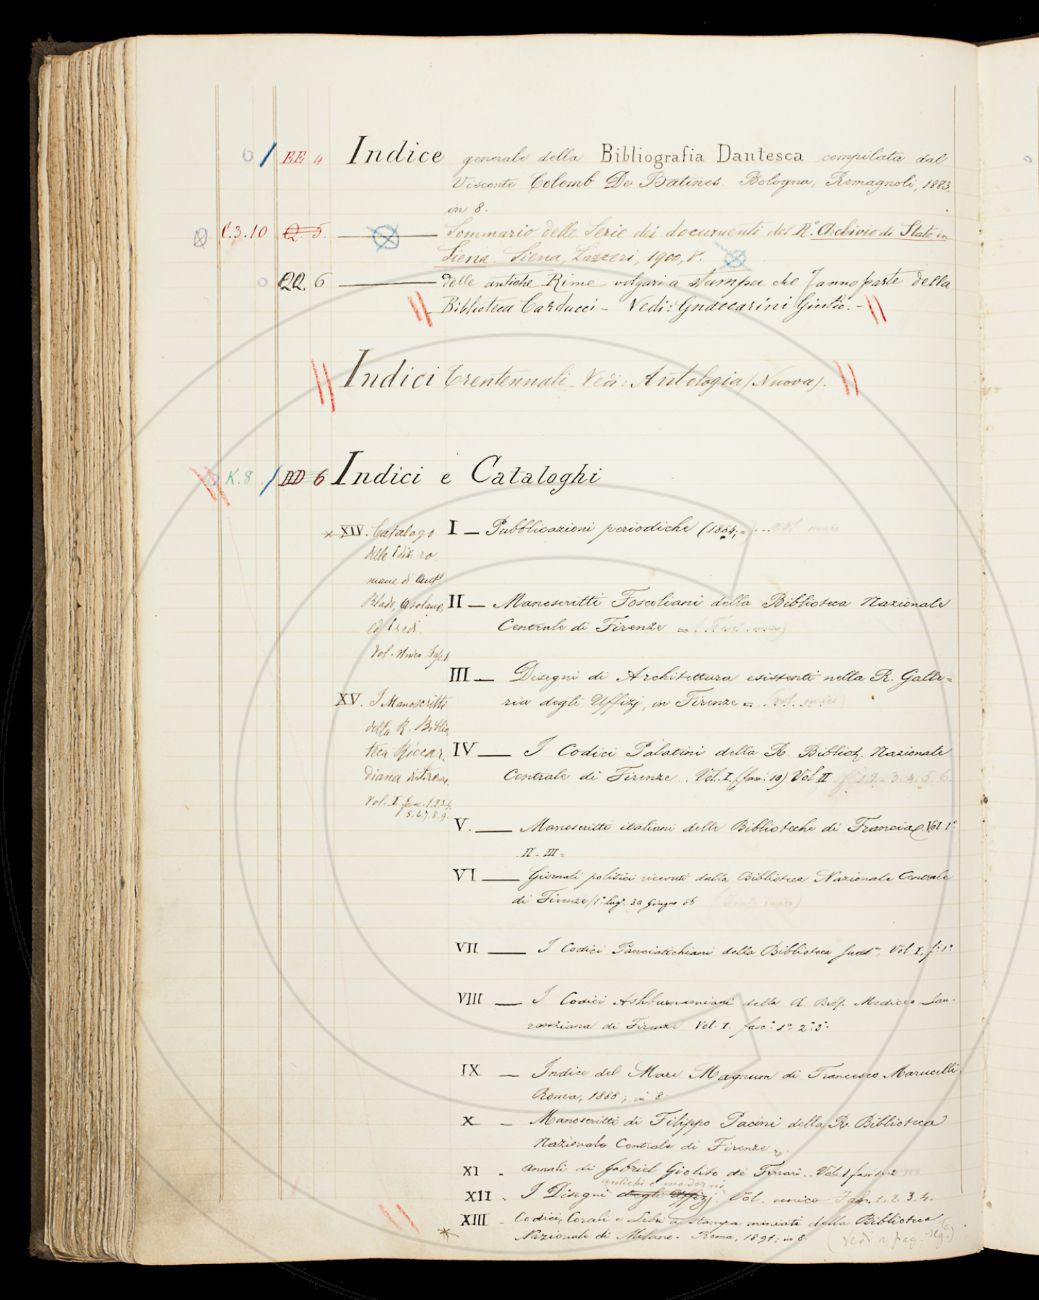 EE 4 Indice generale della Bibliografia Dantesca compilata dal
Visconte Colomb De Batines. Bologna, Romagnoli, 1883,
in 8.
C.3.10 Q 5. Sommario delle Serie dei documenti del R.° Archivio di Stato in
Siena. Siena, Lazzeri, 1900, 8.
QQ 6 delle antiche Rime volgari a stampa che fanno parte della
Biblioteca Carducci - Vedi: Gnaccarini Giulio. -
Indici trentennali. Vedi: Antologia (Nuova).
K.8 DD 6 Indici e Cataloghi
I — Pubblicazioni periodiche (1884,
II — Manoscritti Foscoliani della Biblioteca Nazionale
Centrale di Firenze =
III — Disegni di Architettura esistenti nella R. Galle=
ria degli Uffizj, in Firenze =
IV — I Codici Palatini della R. Bibliot. Nazionale
Centrale di Firenze. Vol. I. (fasc: 10) Vol. II 3. 4. 5. 6
V. — Manoscritti italiani delle Biblioteche di Francia. Vol. 1°
II - III =
VI — Giornali politici ricevuti dalla Biblioteca Nazionale Centrale
di Firenze 1° Lug. 30 Giugno 86
VII — I Codici Panciatichiani della Biblioteca Vol. I. f. 1°
VIII — I Codici Ashburnamiani della R. Mediceo Lau-
renziana di Firenze Vol. I. fasc. 1° 2° 3°
IX — Indice del Mare Magnum di Francesco Marucelli
Roma, 1888; in 8
X — Manoscritti di Filippo Pacini della R. Biblioteca
Nazionale Centrale di Firenze
XI - Annali di Gabriel Giolito de Ferrari. Vol. I fasc. 1. 2
antichi e moderni
XII - I Disegni degli Uffizj Vol. unico Fasc. 1. 2. 3. 4.
XIII - Codici, Corali e Libri a stampa miniati della Biblioteca
Nazionale di Milano. Roma, 1891; in 8
(Vedi a pag. seg.)
XIV. Catalogo
delle Ediz. ro
mane di
Blado, Asolano,
ed Eredi.
Vol.
XV. I Manoscritti
della R. Biblio
teca Riccar
diana di Firenze
Vol. I. fasc. 1.2.3.4.
5. 6. 7. 8. 9.